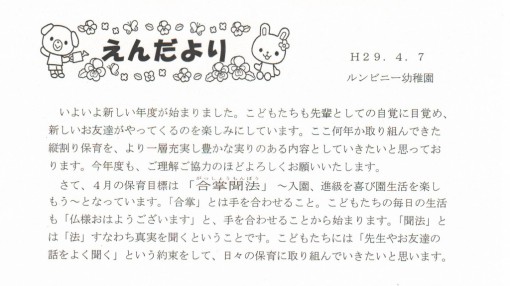 えんだより
H29.4.7
ルンビニー幼稚園
いよいよ新しい年度が始まりました。こどもたちも先輩としての自覚に目覚め、
新しいお友達がやってくるのを楽しみにしています。ここ何年か取り組んできた
縦割り保育を、より一層充実し豊かな実りのある内容としていきたいと思ってお
ります。今年度も、ご理解ご協力のほどよろしくお願いいたします。
がっしょうもんぽう
さて、４月の保育目標は「合掌聞法」～入園、進級を喜び園生活を楽し
もう～となっています。「合掌」とは手を合わせること。こどもたちの毎日の生活
も「仏様おはようございます」と、手を合わせることから始まります。「聞法」と
は「法」すなわち真実を聞くということです。こどもたちには「先生やお友達の
話をよく聞く」という約束をして、日々の保育に取り組んでいきたいと思います。